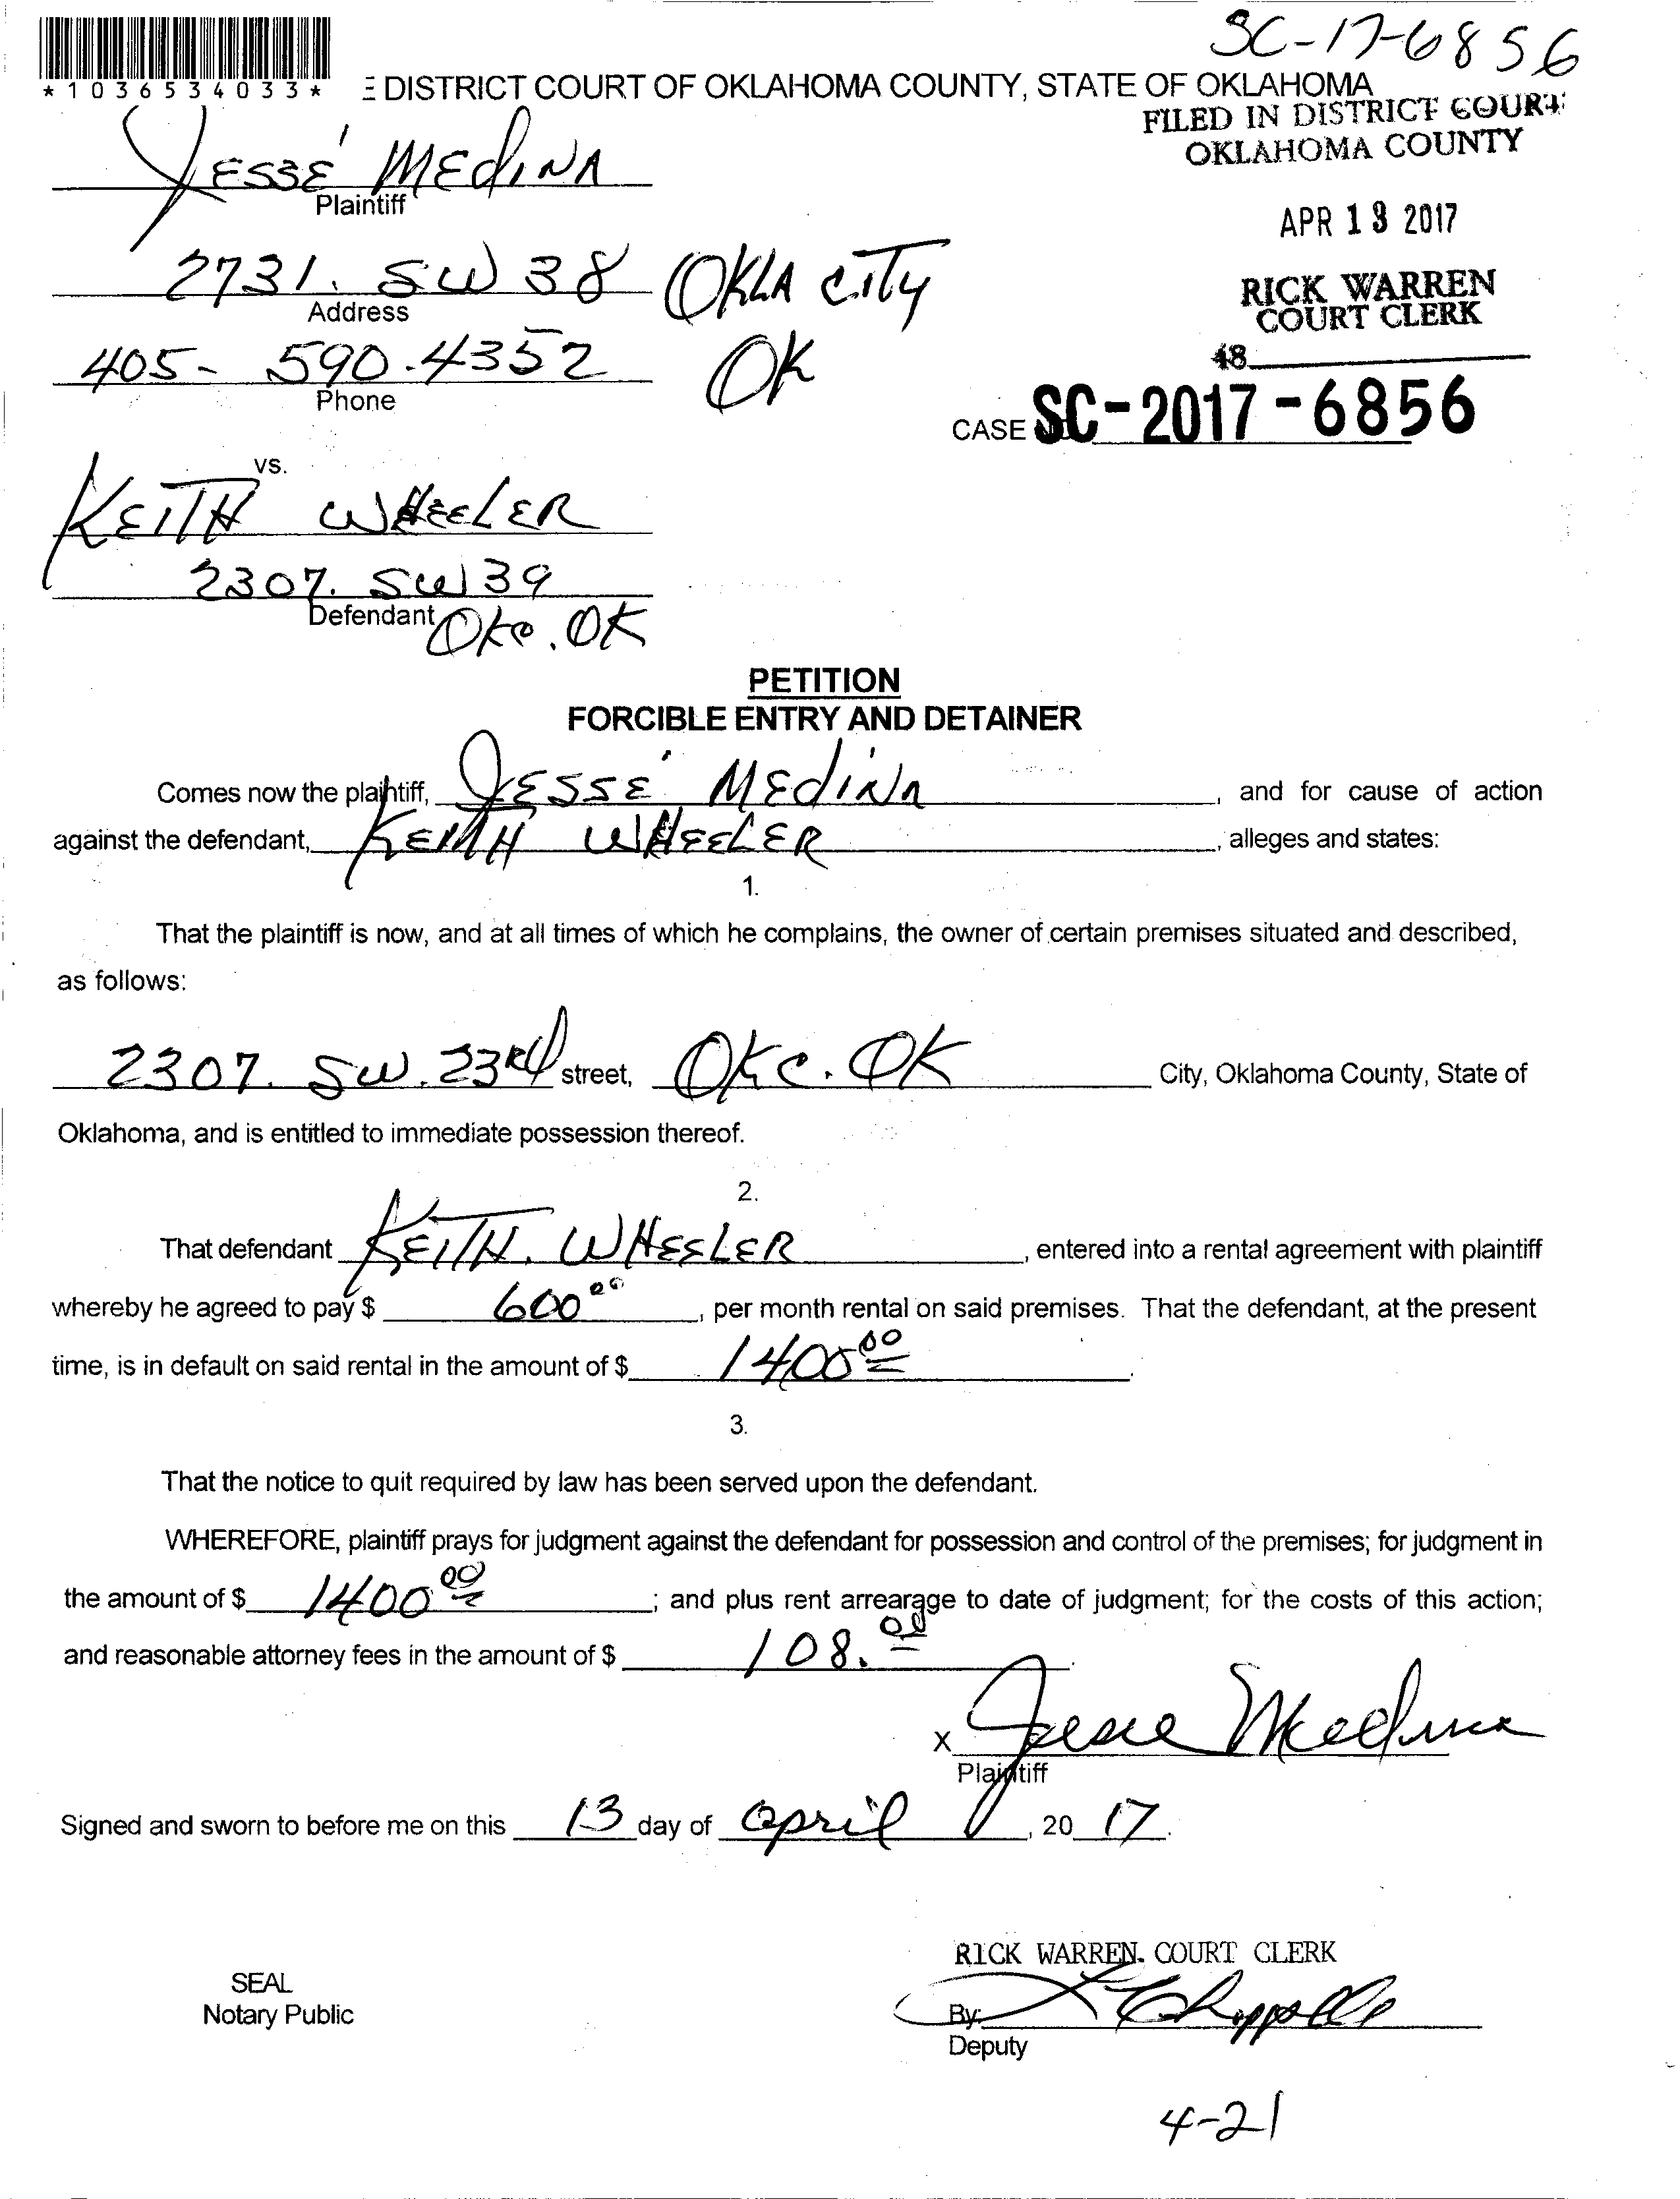 SC-17-6856
*1036534033*
E DISTRICT COURT OF OKLAHOMA COUNTY, STATE OF OKLAHOMA
FILED IN DISTRICT COURT
OKLAHOMA COUNTY
JESSE MEDINA
Plaintiff
APR 13 2017
2731. SW 38 OKLA CITY
Address
RICK WARREN
COURT CLERK
405- 590-4352 OK
Phone
48
CASE NO. SC-2017-6856
vs.
KEITH WHEELER
2307. SW 39
Defendant OKC. OK
PETITION
FORCIBLE ENTRY AND DETAINER
Comes now the plaintiff, JESSE MEDINA, and for cause of action
against the defendant, KEITH WHEELER, alleges and states:
1.
That the plaintiff is now, and at all times of which he complains, the owner of certain premises situated and described,
as follows:
2307. SW. 23RD street, OKC. OK City, Oklahoma County, State of
Oklahoma, and is entitled to immediate possession thereof.
2.
That defendant KEITH. WHEELER, entered into a rental agreement with plaintiff
whereby he agreed to pay $ 600 00, per month rental on said premises. That the defendant, at the present
time, is in default on said rental in the amount of $ 1400 00.
3.
That the notice to quit required by law has been served upon the defendant.
WHEREFORE, plaintiff prays for judgment against the defendant for possession and control of the premises; for judgment in
the amount of $ 1400 00; and plus rent arrearage to date of judgment; for the costs of this action;
and reasonable attorney fees in the amount of $ 108. 00.
x Jesse Medina
Plaintiff
Signed and sworn to before me on this 13 day of april, 20 17.
RICK WARREN. COURT CLERK
SEAL
Notary Public
By:
Deputy
4-21